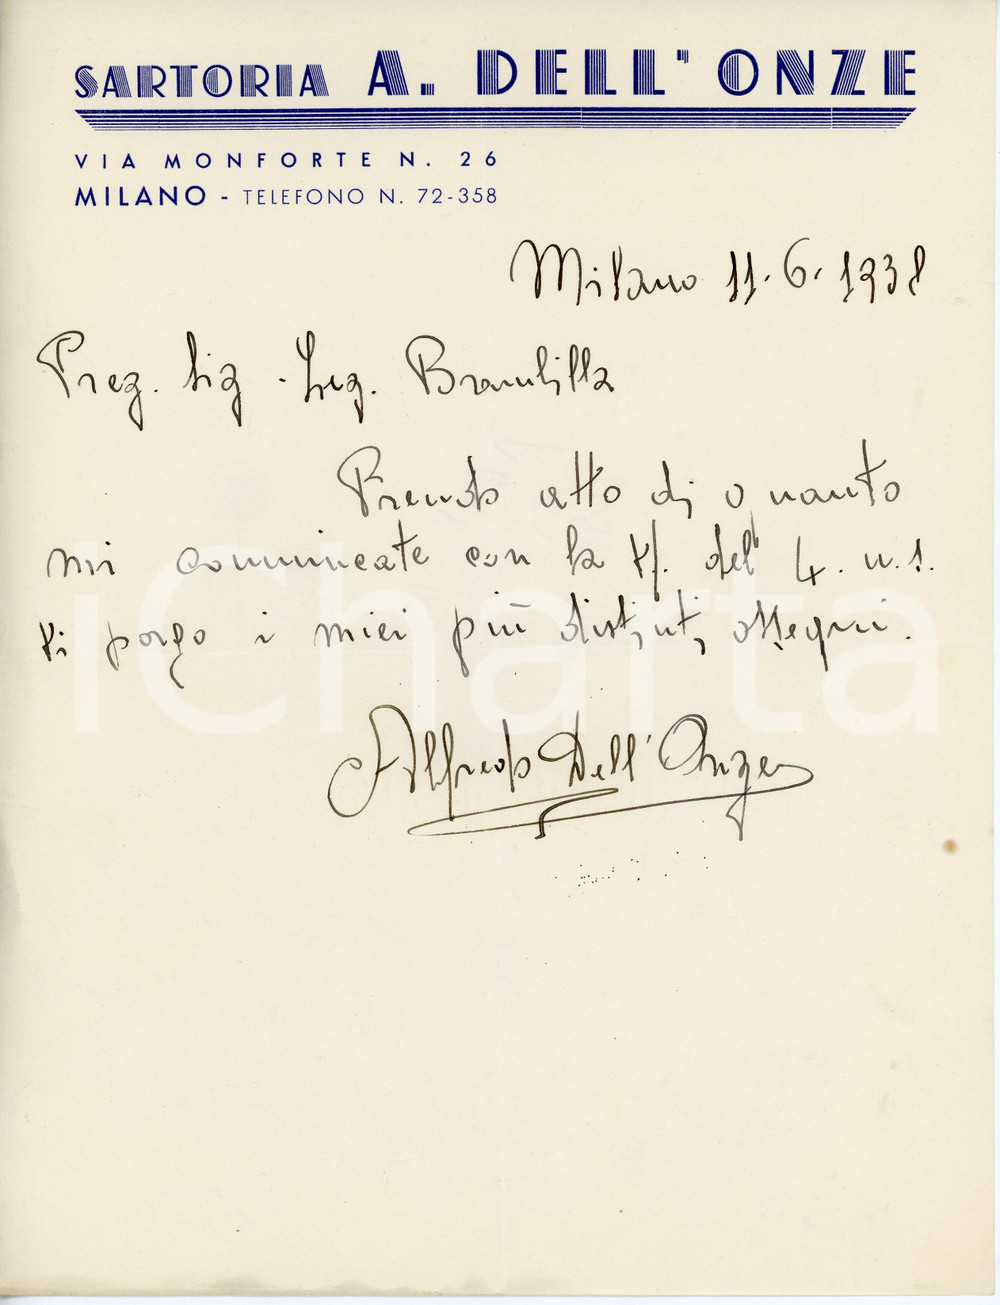 SARTORIA A. DELL' ONZE
VIA MONFORTE N. 26
MILANO - TELEFONO N. 72-358
Milano 11.6.1938
Preg. Sig. Brambilla
Prendo atto di quanto
mi comunicate con la V/. del 4. u.s.
Vi porgo i miei più distinti ossequi.
Alfredo Dell'Onze
iCharta